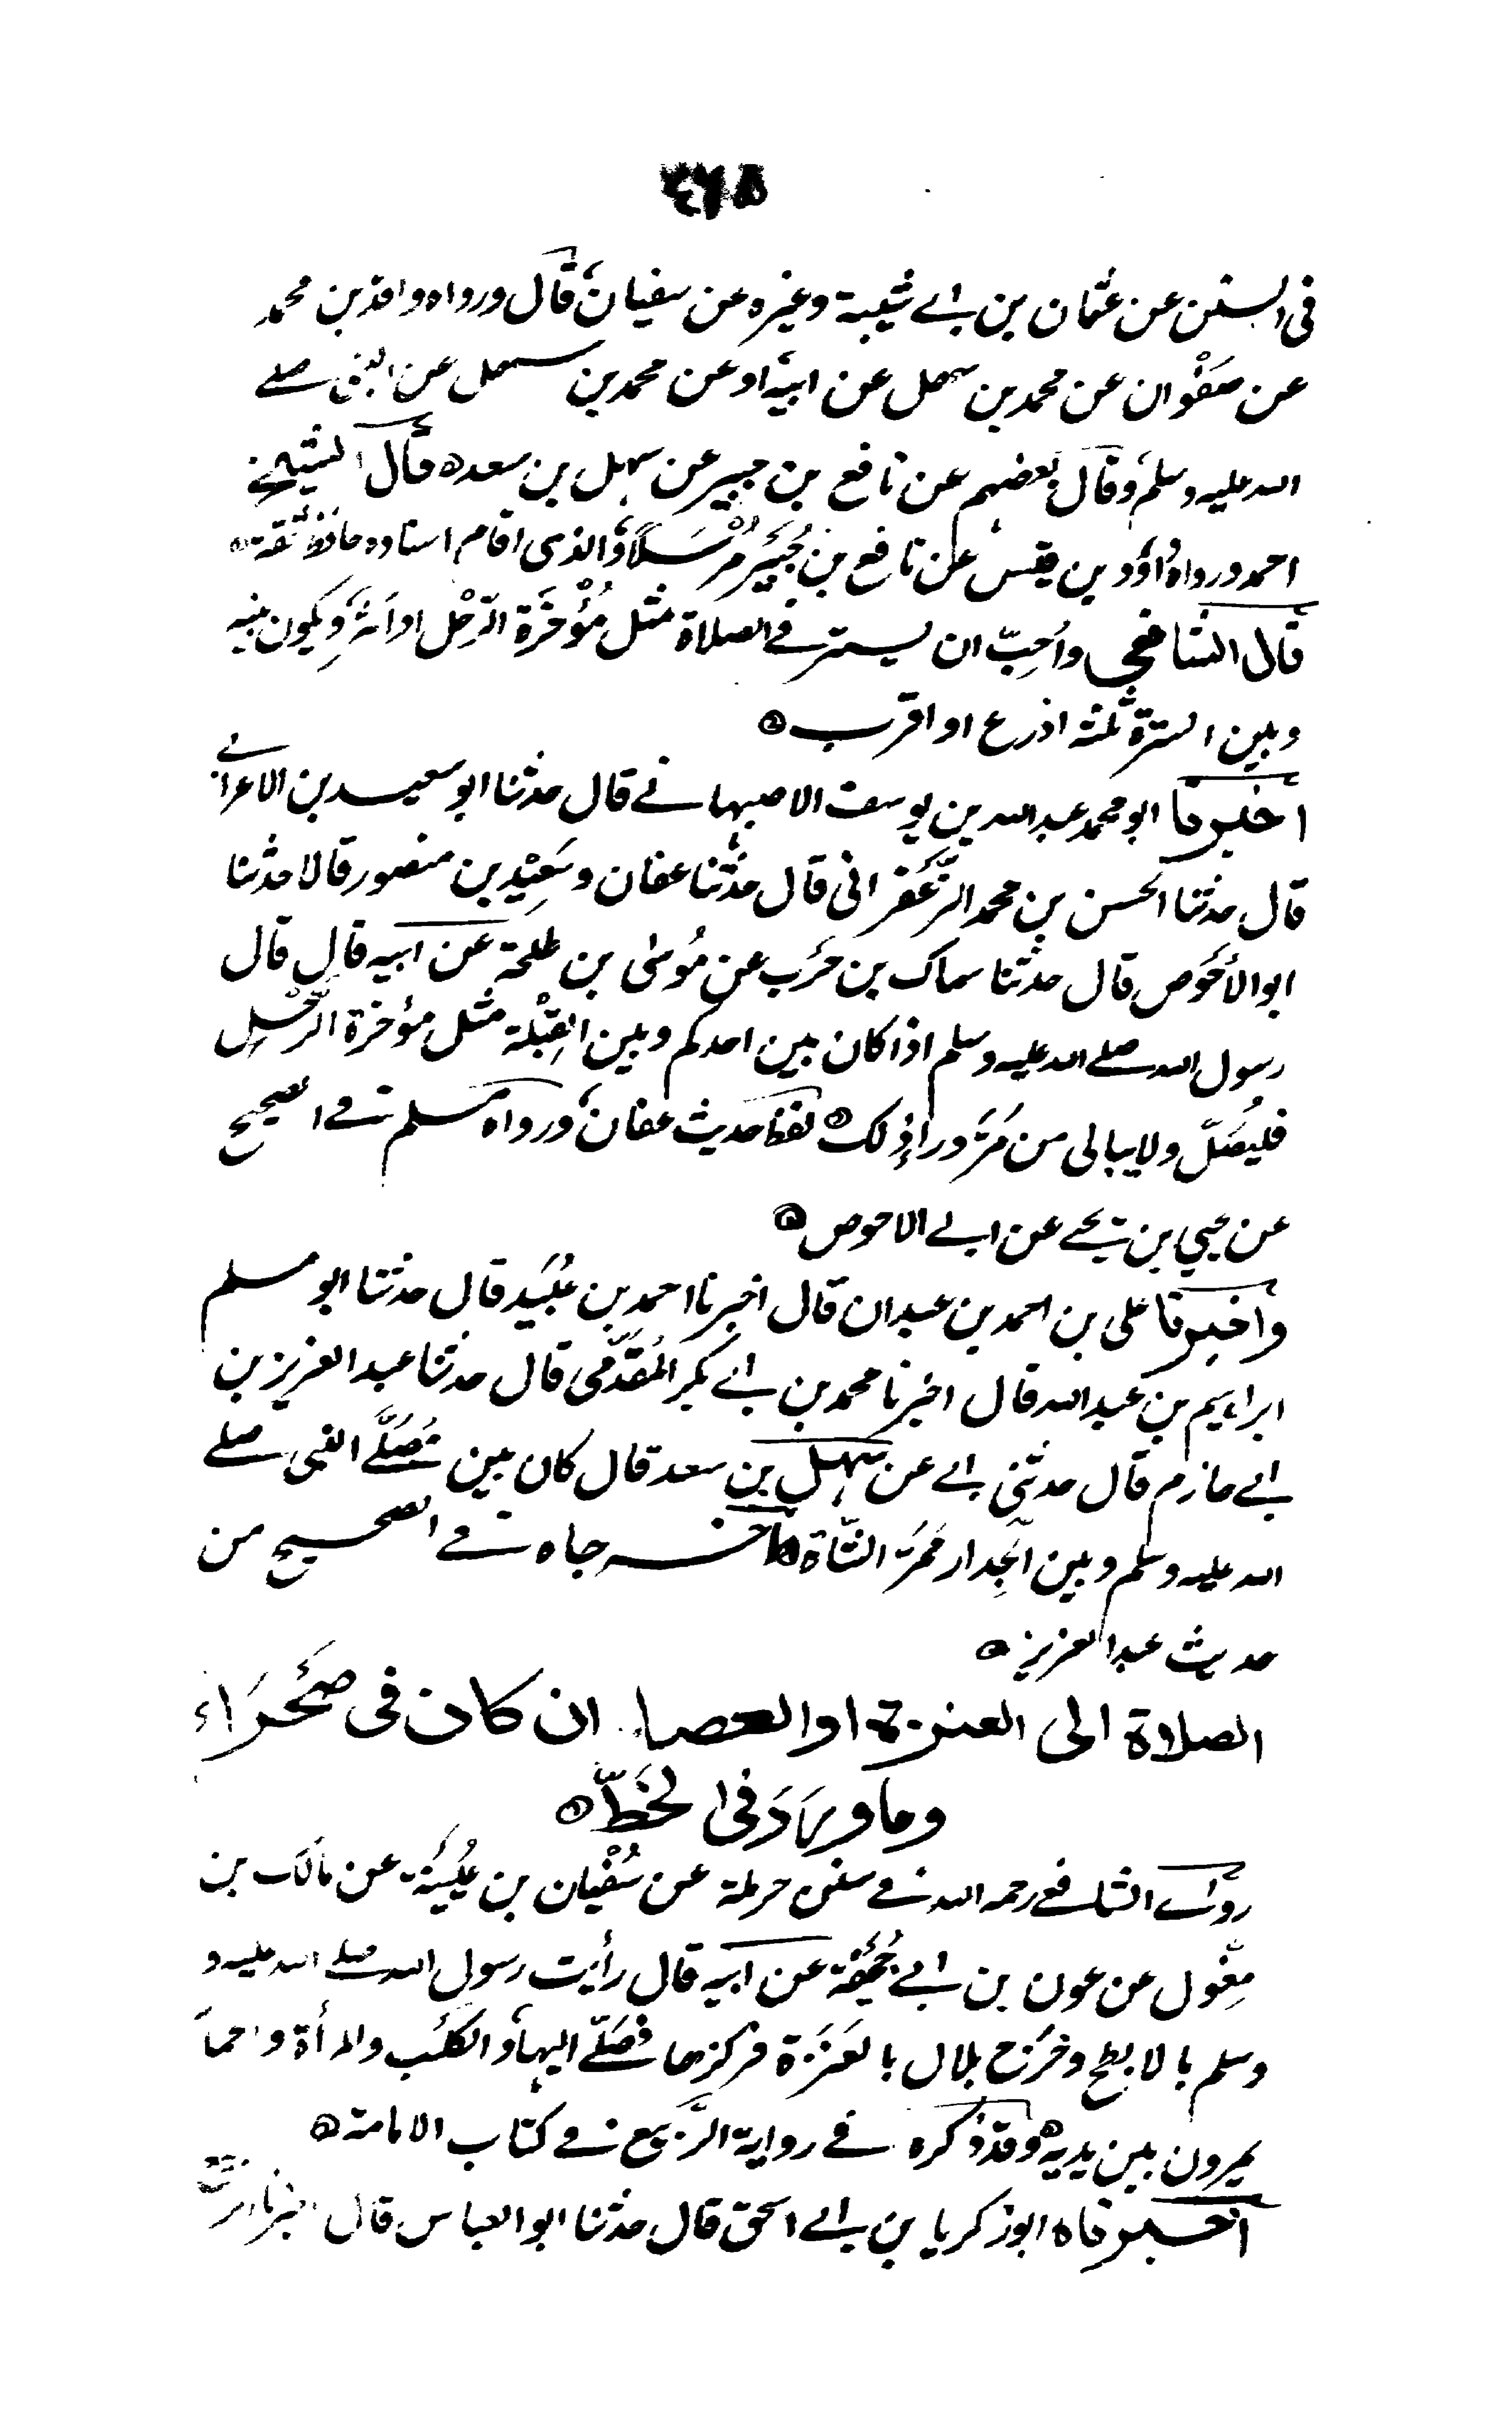 في السنن عن عثمان بن ابي شيبة وغيره عن سفيان قال ورواه واقد بن محمد
عن صفْوان عن محمد بن سهل عن ابيه او عن محمد بن سهل عن النبي صلى
الله عليه وسلم وقال بعضهم عن نافع بن جبير عن سهل بن سعد ه قال الشيخ
احمد ورواه داوُد بن قيس عن نافع بن جُبَيْر مُرْسَلاً والذي اقام اسناده حافظ ثقة ه
قال الشافعي واُحِبّ ان يستتر في الصلاة مثل مُؤْخَرَة الرَّحْل او اَثَرٍ ويكون بينه
وبين السترة ثلثة اذرع او اقرب ه
اخبرنا ابو محمد عبد الله بن يوسف الاصبهاني قال حدثنا ابو سعيد بن الاعرابي
قال حدثنا الحسن بن محمد الزَّعْفَراني قال حدثنا عفان وسَعِيْد بن منصور قالا حدثنا
ابو الأحْوَص قال حدثنا سماك بن حَرْب عن مُوسٰى بن طلحة عن ابيه قال قال
رسول الله صلى الله عليه وسلم اذا كان بين احدكم وبين القِبْلَة مثل مؤخرة الرَّحْل
فليُصَلّ ولا يبالي من مَرَّ وراء ذلك ه لفظ حديث عفان ورواه مسلم في الصحيح
عن يحيى بن يحيى عن ابي الاحوص ه
واخبرنا علي بن احمد بن عبدان قال اخبرنا احمد بن عُبَيْد قال حدثنا ابو مسلم
ابراهيم بن عبد الله قال اخبرنا محمد بن ابي بكر المُقَدَّمي قال حدثنا عبد العزيز بن
ابي حازم قال حدثني ابي عن سهل بن سعد قال كان بين مُصَلَّى النبي صلى
الله عليه وسلم وبين الجِدار مَمَرّ الشَّاة ه اخرجاه في الصحيح من
حديث عبد العزيز ه
الصلاة الى العنزة او العصا ان كان في صَحْرَاء
وما ورَدَ في الخَطّ ه
روى الشافعي رحمه الله في سنن حرملة عن سُفْيان بن عُيَيْنَة عن مالك بن
مِغْول عن عون بن ابي جُحَيْفَة عن ابيه قال رأيت رسول الله صلى الله عليه و
وسلم بالابطح وخَرَج بلال بالعَنَزَة فركزها فصَلّى اليها والكَلْب والمرأة والحمار
يمرون بين يديه ه وقد ذكره في رواية الرَّبيع في كتاب الامامة ه
اخبرناه ابو زكريا بن ابي اسحق قال حدثنا ابو العباس قال اخبرنا الربيع